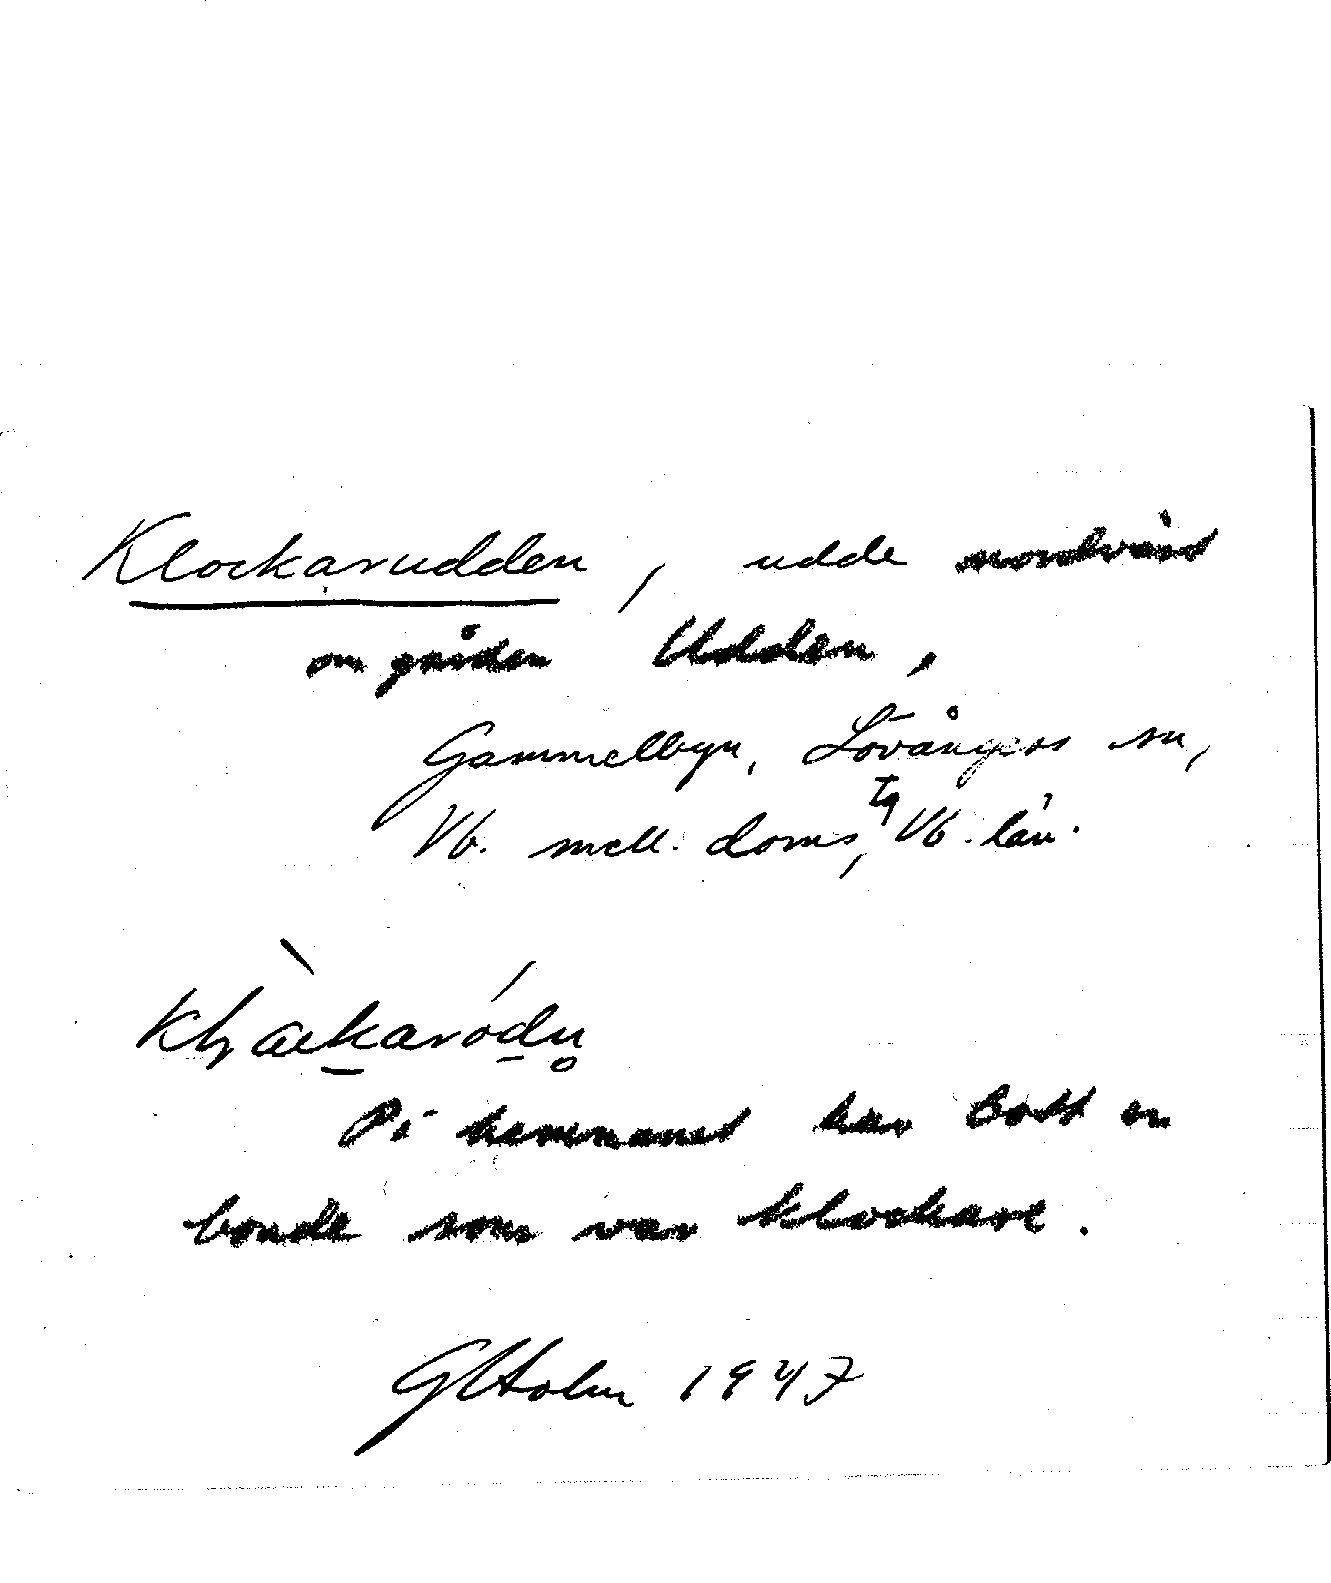 Klockarudden, udde nordväst
om gården Udden,
Gammelbyn, Lövångers sn,
Vb. mell. doms, tg Vb. län.
På hemmanet har bott en
bonde som var klockare.
GHolm 1947